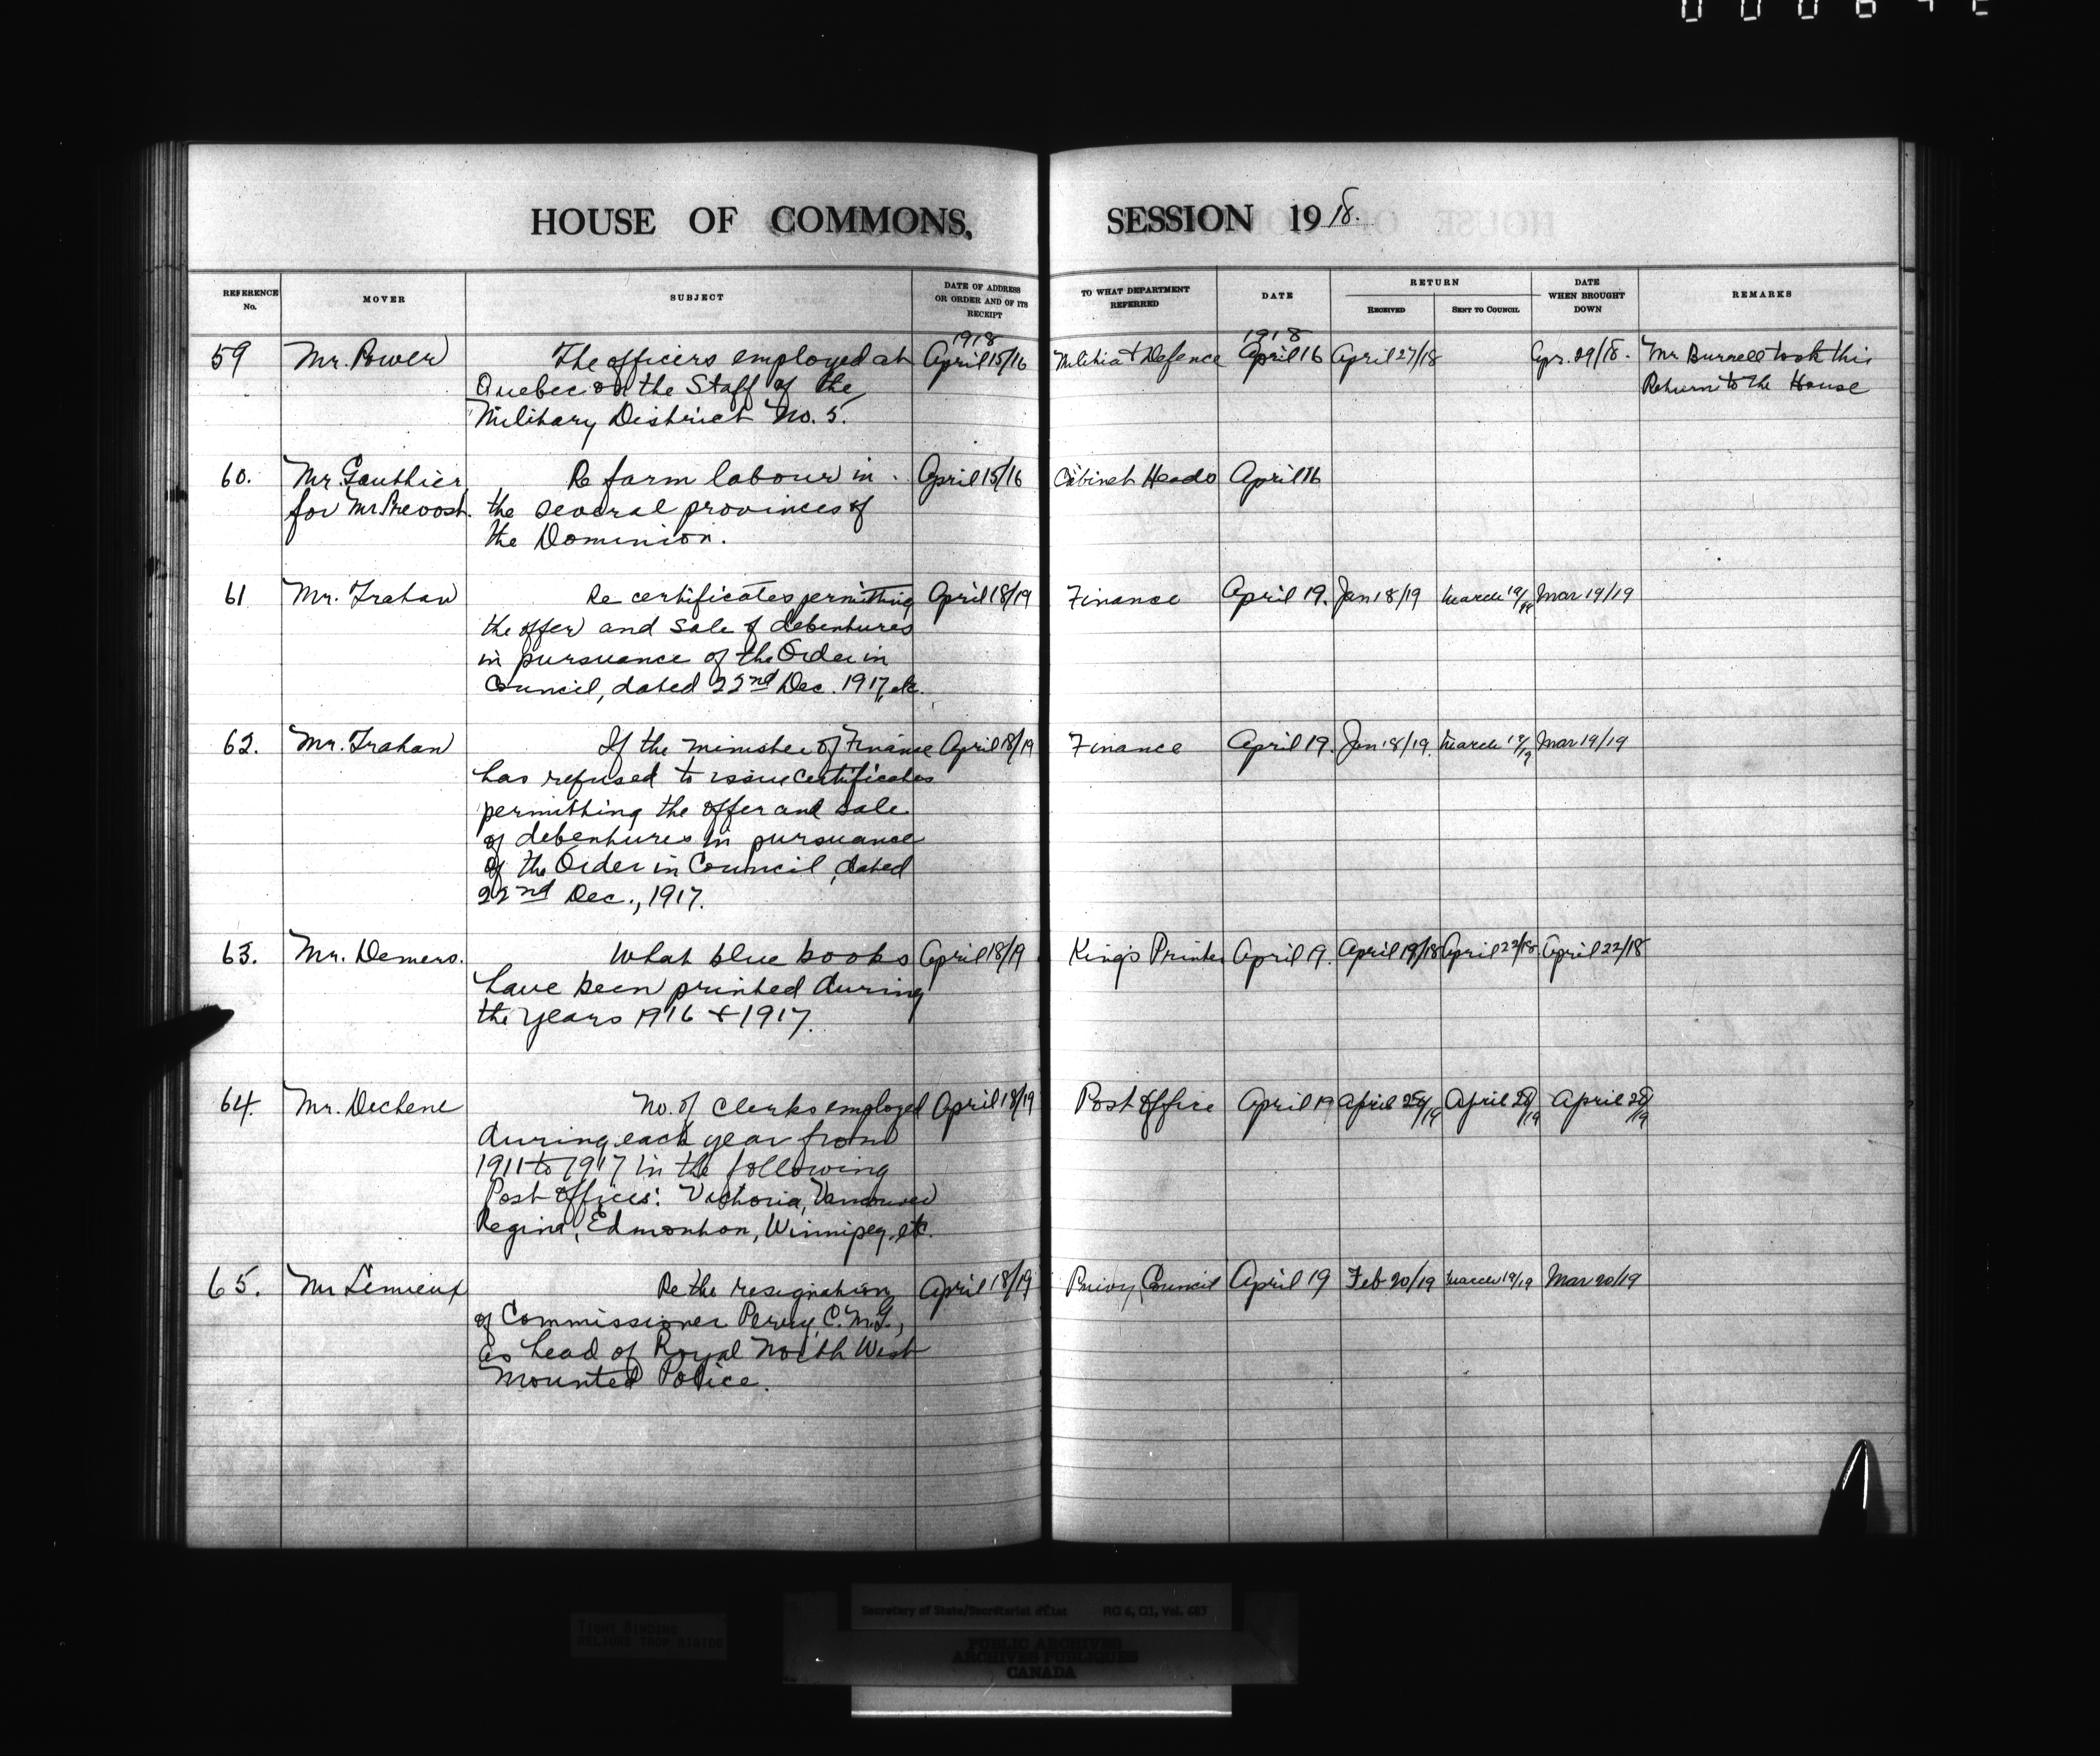 HOUSE OF COMMONS, SESSION 1918.
REFERENCE No. MOVER SUBJECT DATE OF ADDRESS OR ORDER AND OF ITS RECEIPT TO WHAT DEPARTMENT REFERRED DATE RETURN RECEIVED SENT TO COUNCIL DATE WHEN BROUGHT DOWN REMARKS
1918 1918
59 Mr. Power The officers employed at April 15/16 Militia & Defence April 16 April 27/18 Apr. 29/18. Mr Burrell took this
Quebec on the Staff of the Return to the House
Military District No. 5.
60. Mr. Gauthier Re farm labour in April 15/16 Cabinet Heads April 16
for Mr Prevost. the several provinces of
the Dominion.
61 Mr. Trahan Re certificates permitting April 18/19 Finance April 19. Jan 18/19 March 19/19 Mar 19/19
the offer and sale of debentures
in pursuance of the Order in
Council, dated 22nd Dec. 1917, etc.
62. Mr. Trahan If the minister of Finance April 18/19 Finance April 19. Jan 18/19. March 19/19 Mar 19/19
has refused to issue certificates
permitting the offer and sale
of debentures in pursuance
of the Order in Council, dated
22nd Dec., 1917.
63. Mr. Demers. What blue books April 18/19 King's Printer April 19. April 19/18 April 22/18 April 22/18
have been printed during
the years 1916 & 1917.
64. Mr. Dechene No. of clerks employed April 18/19 Post Office April 19 April April April
during each year from
1911 to 1917 in the following
Post offices: Victoria, Vancouver
Regina, Edmonton, Winnipeg, etc.
65. Mr Lemieux Re the resignation April 18/19 Privy Council April 19 Feb 20/19 March 19/19 Mar 20/19
of Commissioner Perry, C.M.G.,
as head of Royal North West
Mounted Police.
TIGHT BINDING
RELIURE TROP RIGIDE
Secretary of State/Secrétariat d'Etat RG 6, G1, Vol. 683
PUBLIC ARCHIVES
ARCHIVES PUBLIQUES
CANADA